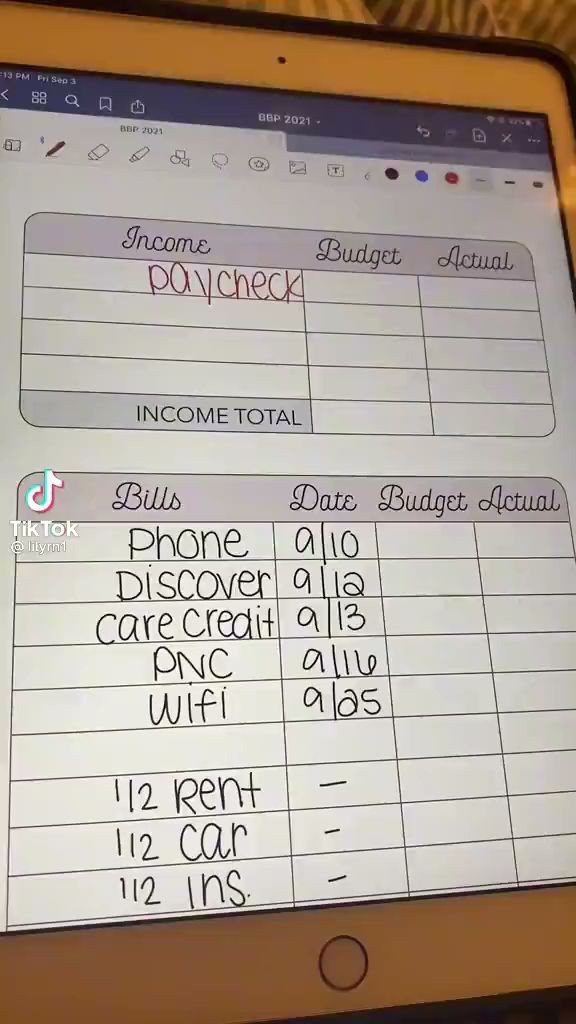 :13 PM Fri Sep 3
BBP 2021
BBP 2021
T
Income Budget Actual
paycheck
INCOME TOTAL
Bills Date Budget Actual
Phone 9/10
Discover 9/12
Care Credit 9/13
PNC 9/16
Wifi 9/25
1/2 Rent –
1/2 Car –
1/2 Ins. –
TikTok
@ lilyrn1